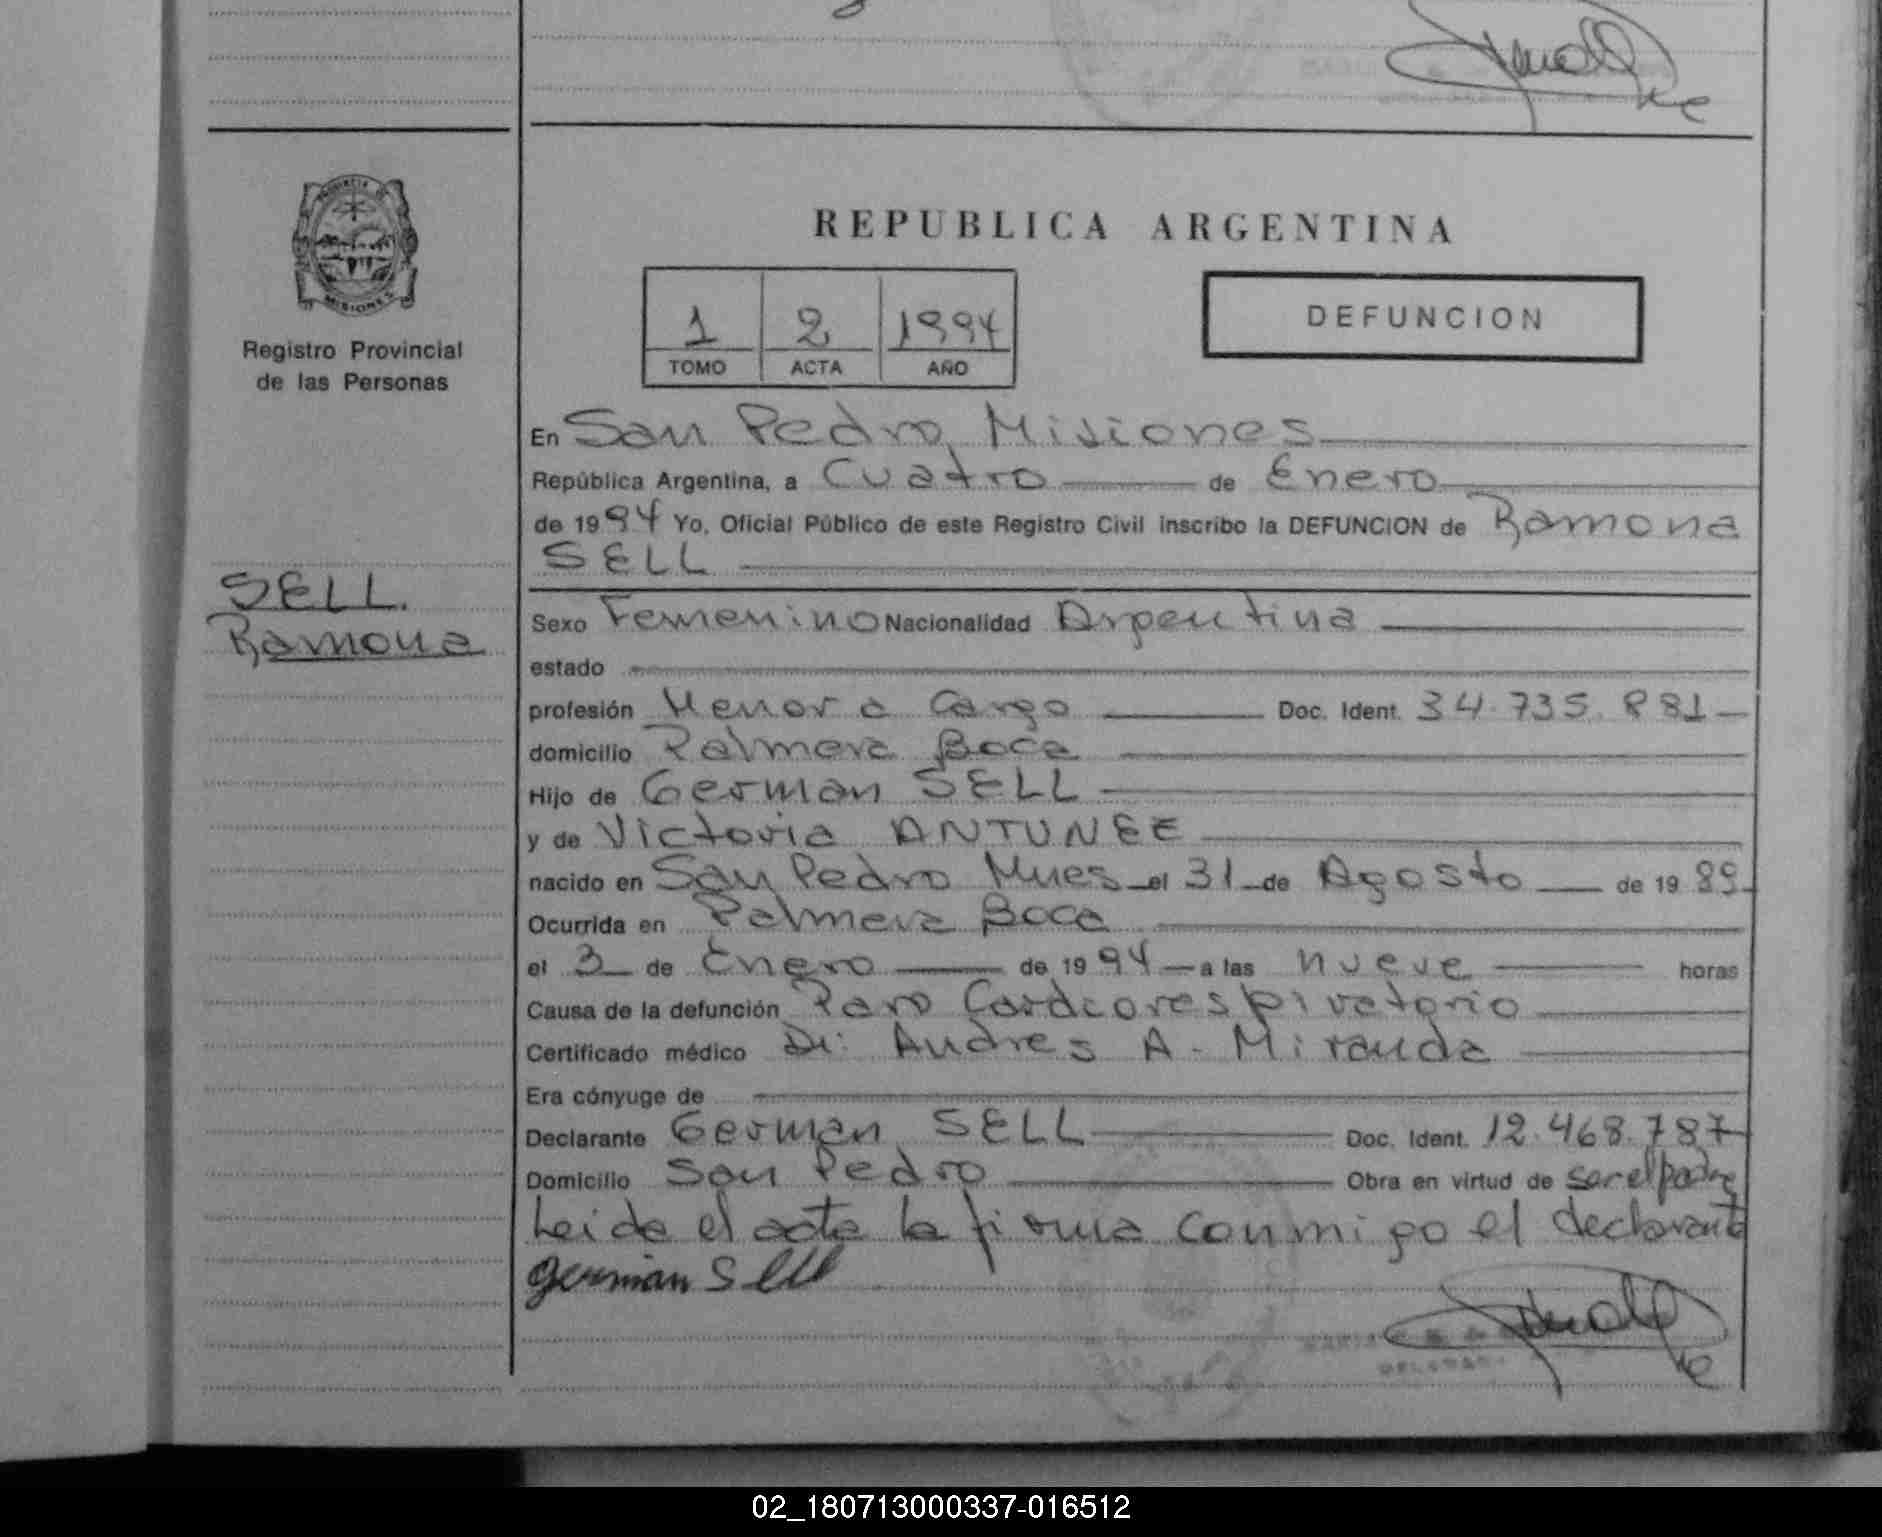 REPUBLICA ARGENTINA
Registro Provincial
de las Personas
1 2 1994
TOMO ACTA AÑO
DEFUNCION
SELL.
Ramona
En San Pedro Misiones
República Argentina, a Cuatro de Enero
de 1994 Yo, Oficial Público de este Registro Civil inscribo la DEFUNCION de Ramona
SELL
Sexo Femenino Nacionalidad Argentina
estado
profesión Menor a Cargo Doc. Ident. 34.735.881
domicilio Palmera Boca
Hijo de German SELL
y de Victoria ANTUNEE
nacido en San Pedro Mnes el 31 de Agosto de 1989
Ocurrida en Palmera Boca
el 3 de Enero de 1994 a las nueve horas
Causa de la defunción Paro Cardcorespiratorio
Certificado médico Dr: Andres A. Miranda
Era cónyuge de
Declarante German SELL Doc. Ident. 12.468.787
Domicilio San Pedro Obra en virtud de ser el padre
Leida el acta la firma conmigo el declarante
german Sell
02_180713000337-016512